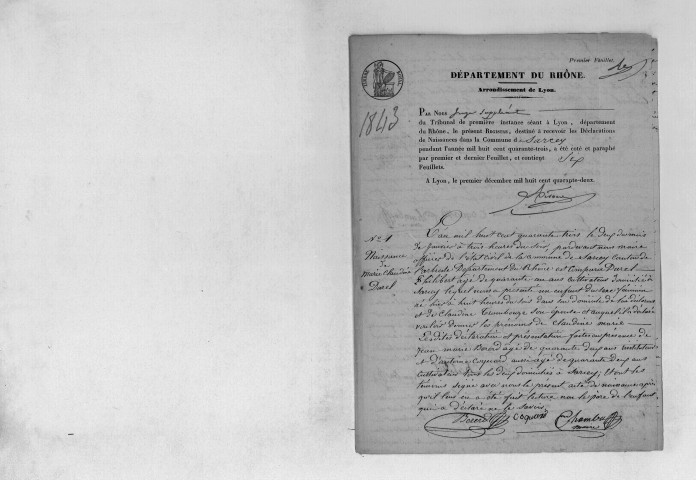 Premier Feuillet.
DÉPARTEMENT DU RHÔNE.
Arrondissement de Lyon.
1843
PAR NOUS Juge Suppléant
du Tribunal de première instance séant à Lyon, département
du Rhône, le présent REGISTRE, destiné à recevoir les Déclarations
de Naissances dans la Commune d Sarcey
pendant l'année mil huit cent quarante-trois, a été coté et paraphé
par premier et dernier Feuillet, et contient Six
Feuillets.
A Lyon, le premier décembre mil huit cent quarante-deux.
N° 1
Naissance
de
Marie Claudine
Duret
L'an mil huit cent quarante trois le deux du mois
de Janvier à trois heures du soir, pardevant nous maire
officier de l'état civil de la commune de Sarcey canton de
Département du Rhône est comparu Duret
Philibert âgé de quarante un ans cultivateur domicilié à
Sarcey lequel nous a présenté un enfant du sexe féminin
né hier à huit heures du soir dans son domicile de lui déclarant
et de Claudine son épouse et auquel il a déclaré
vouloir donner les prénoms de Claudine marie
Lesdites déclaration et présentation faites en présence de
Jean marie Bererd âgé de quarante deux ans instituteur
et d'antoine Coquard aussi âgé de quarante deux ans
cultivateur tous les deux domiciliés à Sarcey, et ont les
témoins signé avec nous le présent acte de naissance après
qu'il leur en a été fait lecture non le père de l'enfant
qui a déclaré ne le savoir
Bererd Coquard Chambu
maire